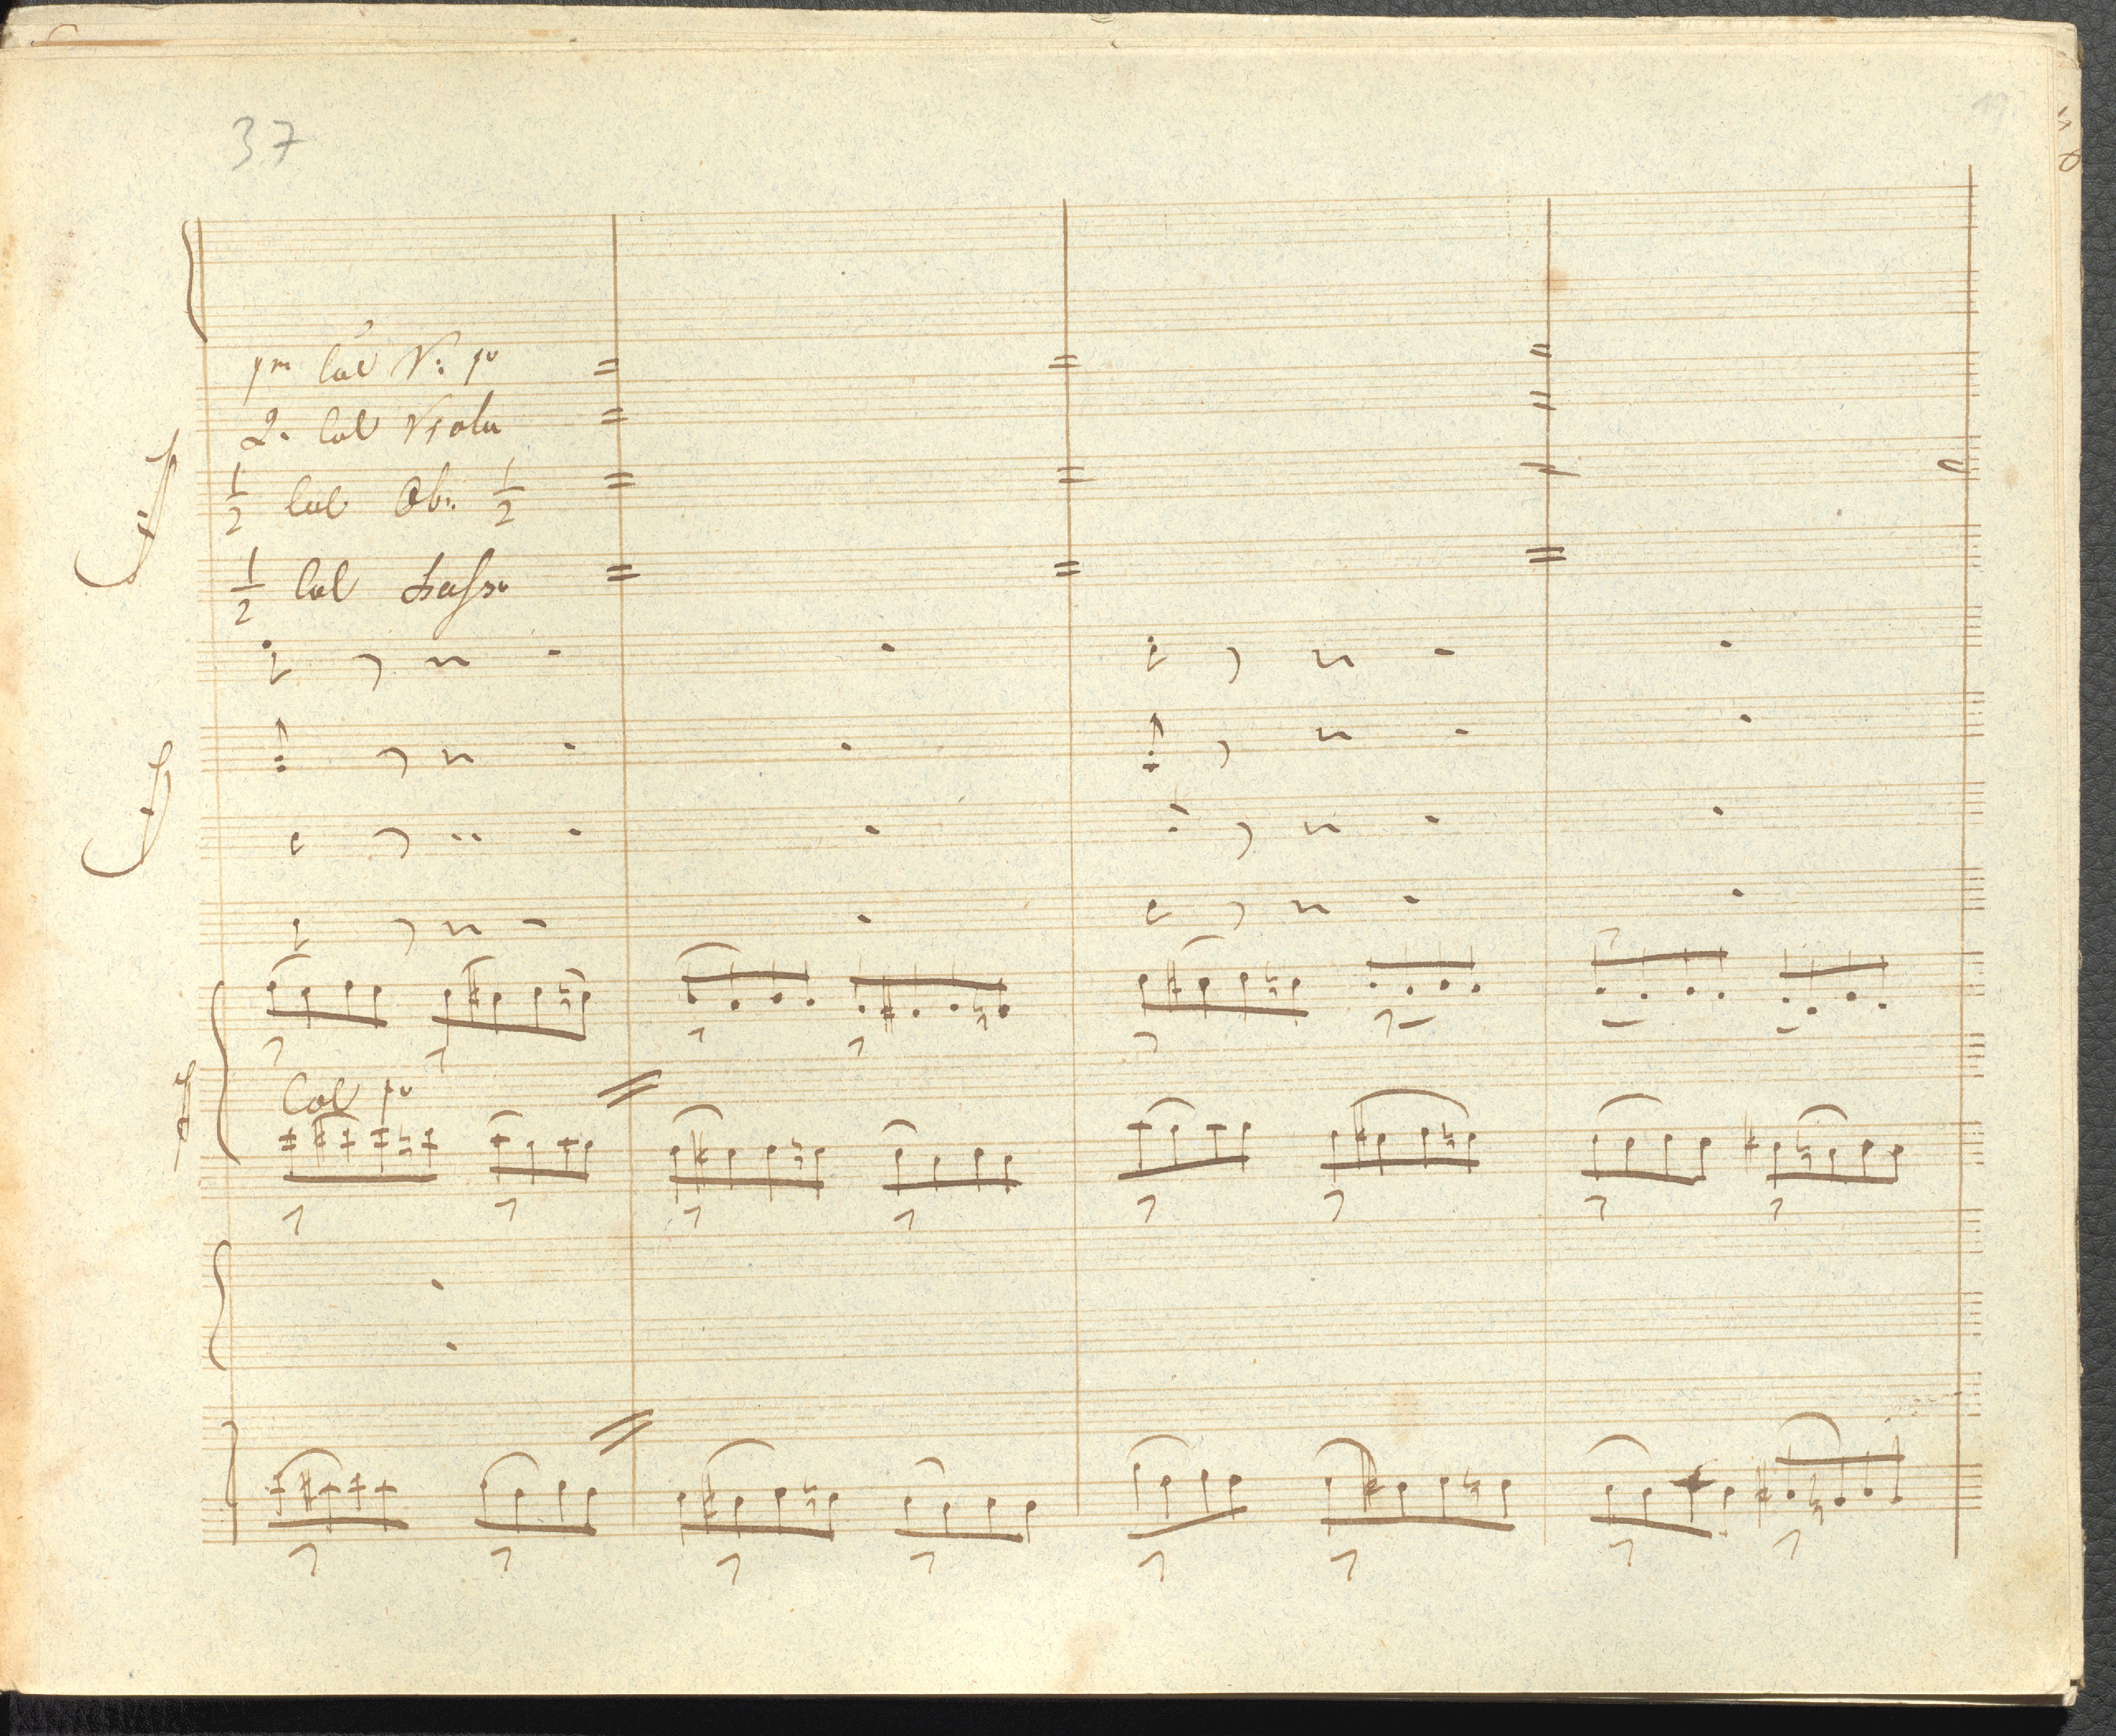 37
1m Col V: po
2. Col Viola
1/2 Col Ob: 1/2
1/2 Col Basso
Col po